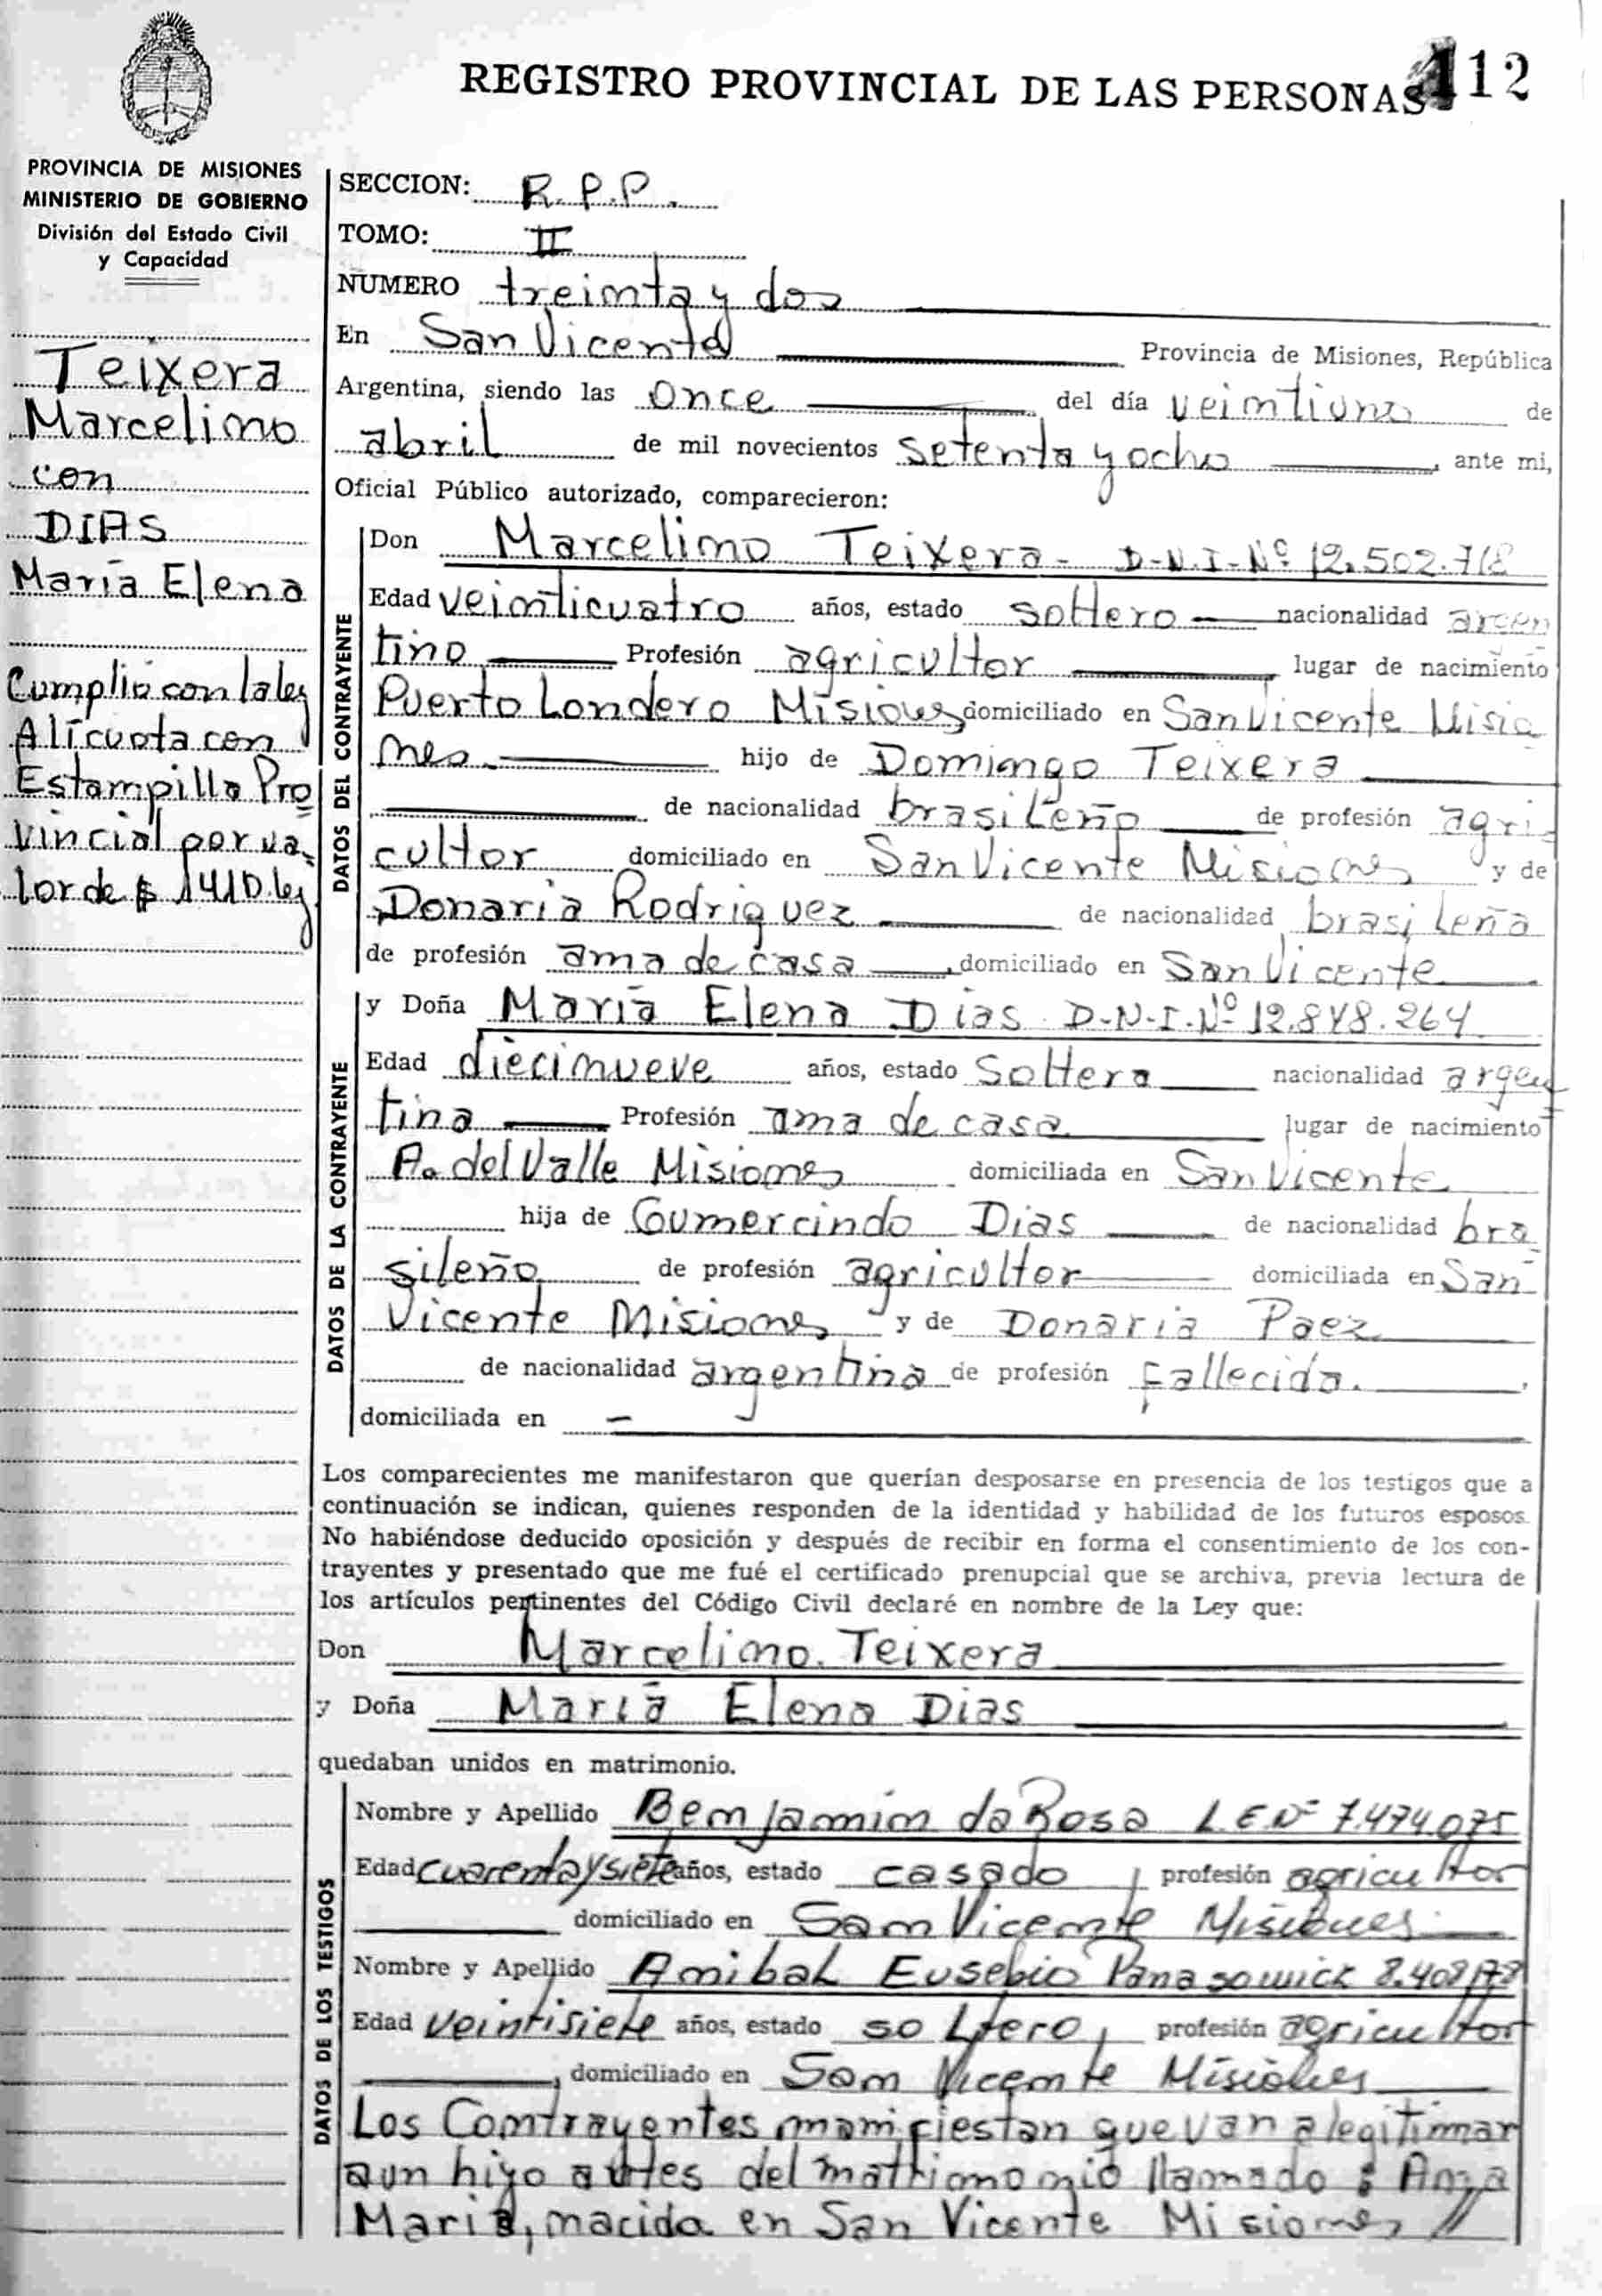 REGISTRO PROVINCIAL DE LAS PERSONAS 112
PROVINCIA DE MISIONES
MINISTERIO DE GOBIERNO
División del Estado Civil
y Capacidad
Teixera
Marcelino
con
DIAS
María Elena
Cumplio con la ley
Alícuota con
Estampilla Pro
vincial por va
lor de $ 1410 ley
SECCION: R.P.P.
TOMO: II
NUMERO treinta y dos
En San Vicente Provincia de Misiones, República
Argentina, siendo las once del día veintiuno de
abril de mil novecientos setenta y ocho, ante mi,
Oficial Público autorizado, comparecieron:
DATOS DEL CONTRAYENTE
Don Marcelino Teixera - D.N.I. Nº 12.502.718
Edad veinticuatro años, estado soltero nacionalidad argen
tino Profesión agricultor lugar de nacimiento
Puerto Londero Misiones domiciliado en San Vicente Misio
nes hijo de Domingo Teixera
de nacionalidad brasileño de profesión agri
cultor domiciliado en San Vicente Misiones y de
Donaria Rodriguez de nacionalidad brasileña
de profesión ama de casa, domiciliado en San Vicente
DATOS DE LA CONTRAYENTE
y Doña María Elena Dias D.N.I. Nº 12.848.264
Edad diecinueve años, estado Soltera nacionalidad argen
tina Profesión ama de casa lugar de nacimiento
A. del Valle Misiones domiciliada en San Vicente
hija de Gumercindo Dias de nacionalidad bra
sileño de profesión agricultor domiciliada en San
Vicente Misiones y de Donaria Paez
de nacionalidad argentina de profesión Fallecida.
domiciliada en —
Los comparecientes me manifestaron que querían desposarse en presencia de los testigos que a
continuación se indican, quienes responden de la identidad y habilidad de los futuros esposos.
No habiéndose deducido oposición y después de recibir en forma el consentimiento de los con-
trayentes y presentado que me fué el certificado prenupcial que se archiva, previa lectura de
los artículos pertinentes del Código Civil declaré en nombre de la Ley que:
Don Marcelino Teixera
y Doña María Elena Dias
quedaban unidos en matrimonio.
DATOS DE LOS TESTIGOS
Nombre y Apellido Benjamin da Rosa L.E Nº 7.474.075
Edad cuarenta y siete años, estado casado, profesión agricultor
domiciliado en San Vicente Misiones
Nombre y Apellido Anibal Eusebio Panasowick
Edad veintisiete años, estado soltero, profesión agricultor
, domiciliado en San Vicente Misiones
Los Contrayentes manifiestan que van a legitimar
a un hijo antes del matrimonio llamado: Ana
Maria, nacida en San Vicente Misiones //